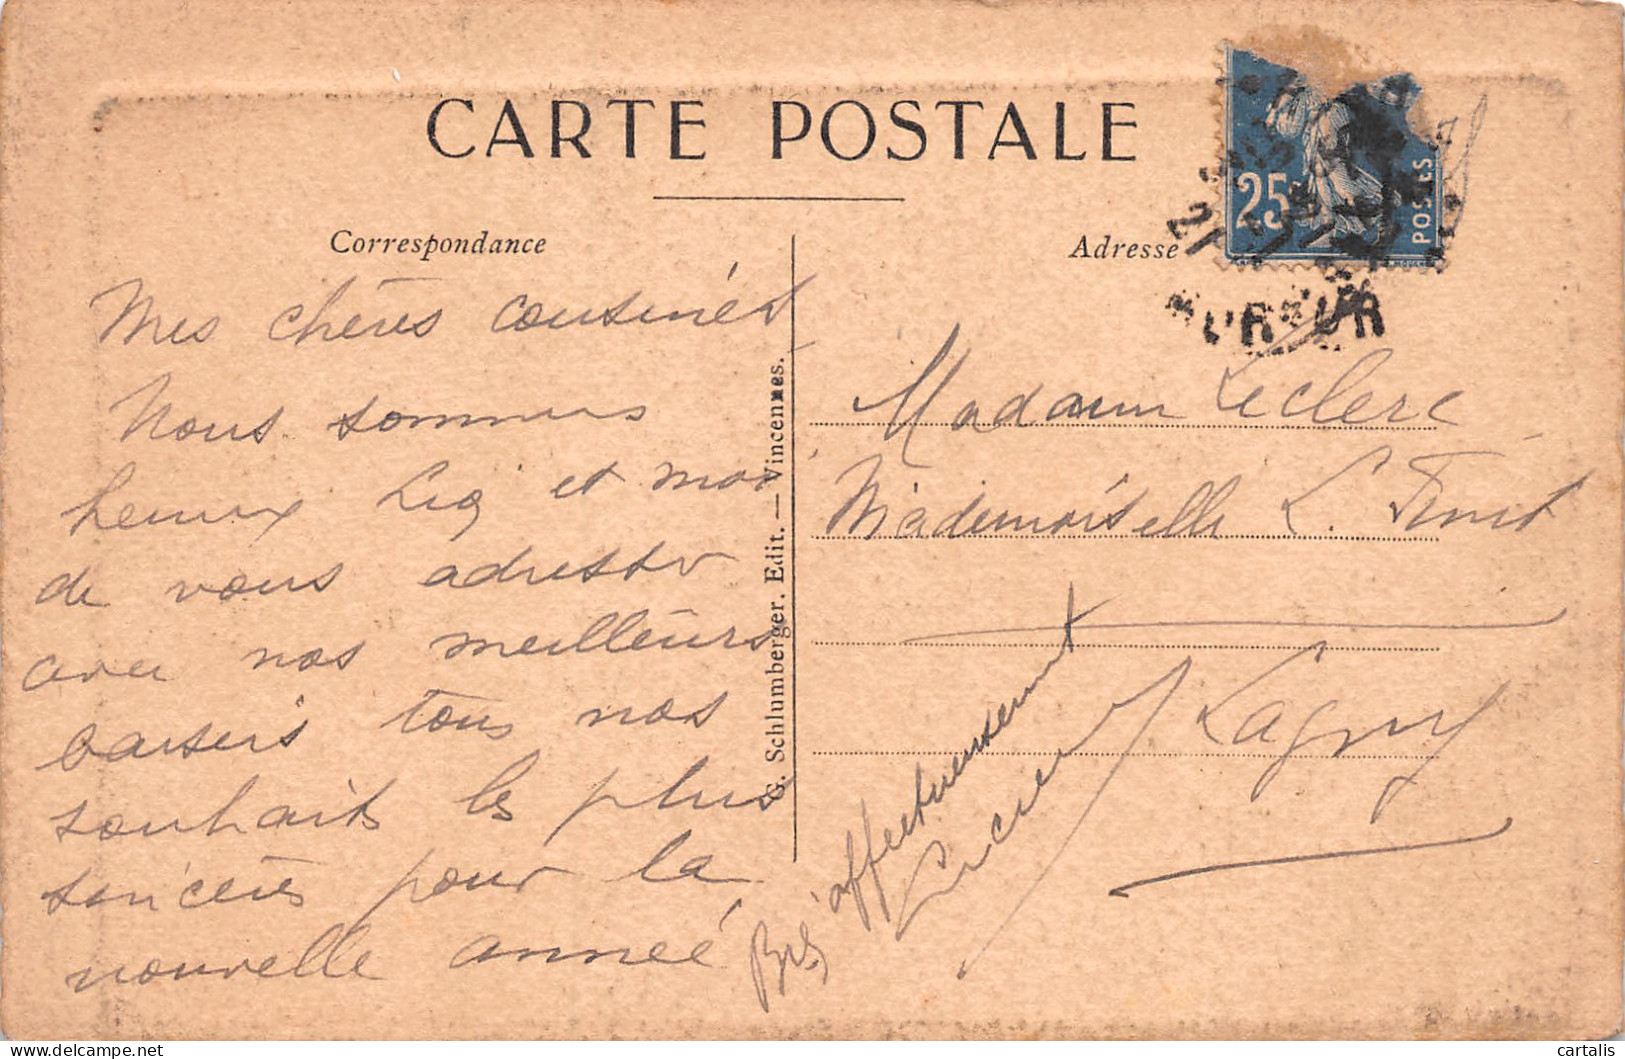 CARTE POSTALE
Correspondance
Adresse
25
POSTES
21
Mes chères cousines
Nous sommes
heureux et moi
de vous adresser
avec nos meilleurs
baisers tous nos
souhaits les plus
sincères pour la
nouvelle année
G. Schlumberger. Edit. — Vincennes.
Madame Leclerc
Mademoiselle L.
Lagny
affectueusement
Lucien
cartalis